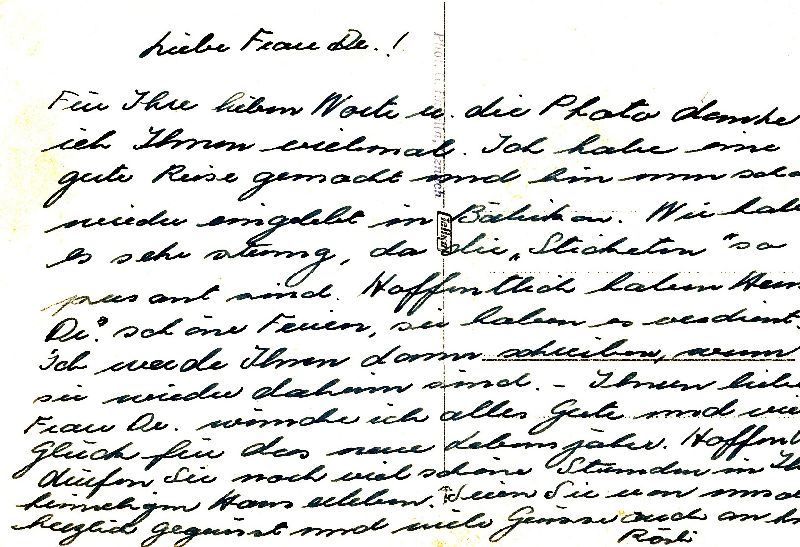 Liebe Frau Dr.!
Für Ihre lieben Worte u. die Photo danke
ich Ihnen vielmal. Ich habe eine
gute Reise gemacht und bin nun scho
wieder eingelebt in Bäretswil. Wir habe
es sehr streng, da die „Sticketen" so
pressant sind. Hoffentlich haben Herr
Dr. schöne Ferien, sie haben es verdient.
Ich werde Ihnen dann schreiben, wenn
sie wieder daheim sind. – Ihnen liebe
Frau Dr. wünsche ich alles Gute und vie
Glück für das neue Lebensjahr. Hoffent
dürfen Sie noch viel schöne Stunden in Ih
heimeligen Haus erleben. Seien Sie von uns a
herzlich gegrüsst und viele Grüsse auch an H
Rösli